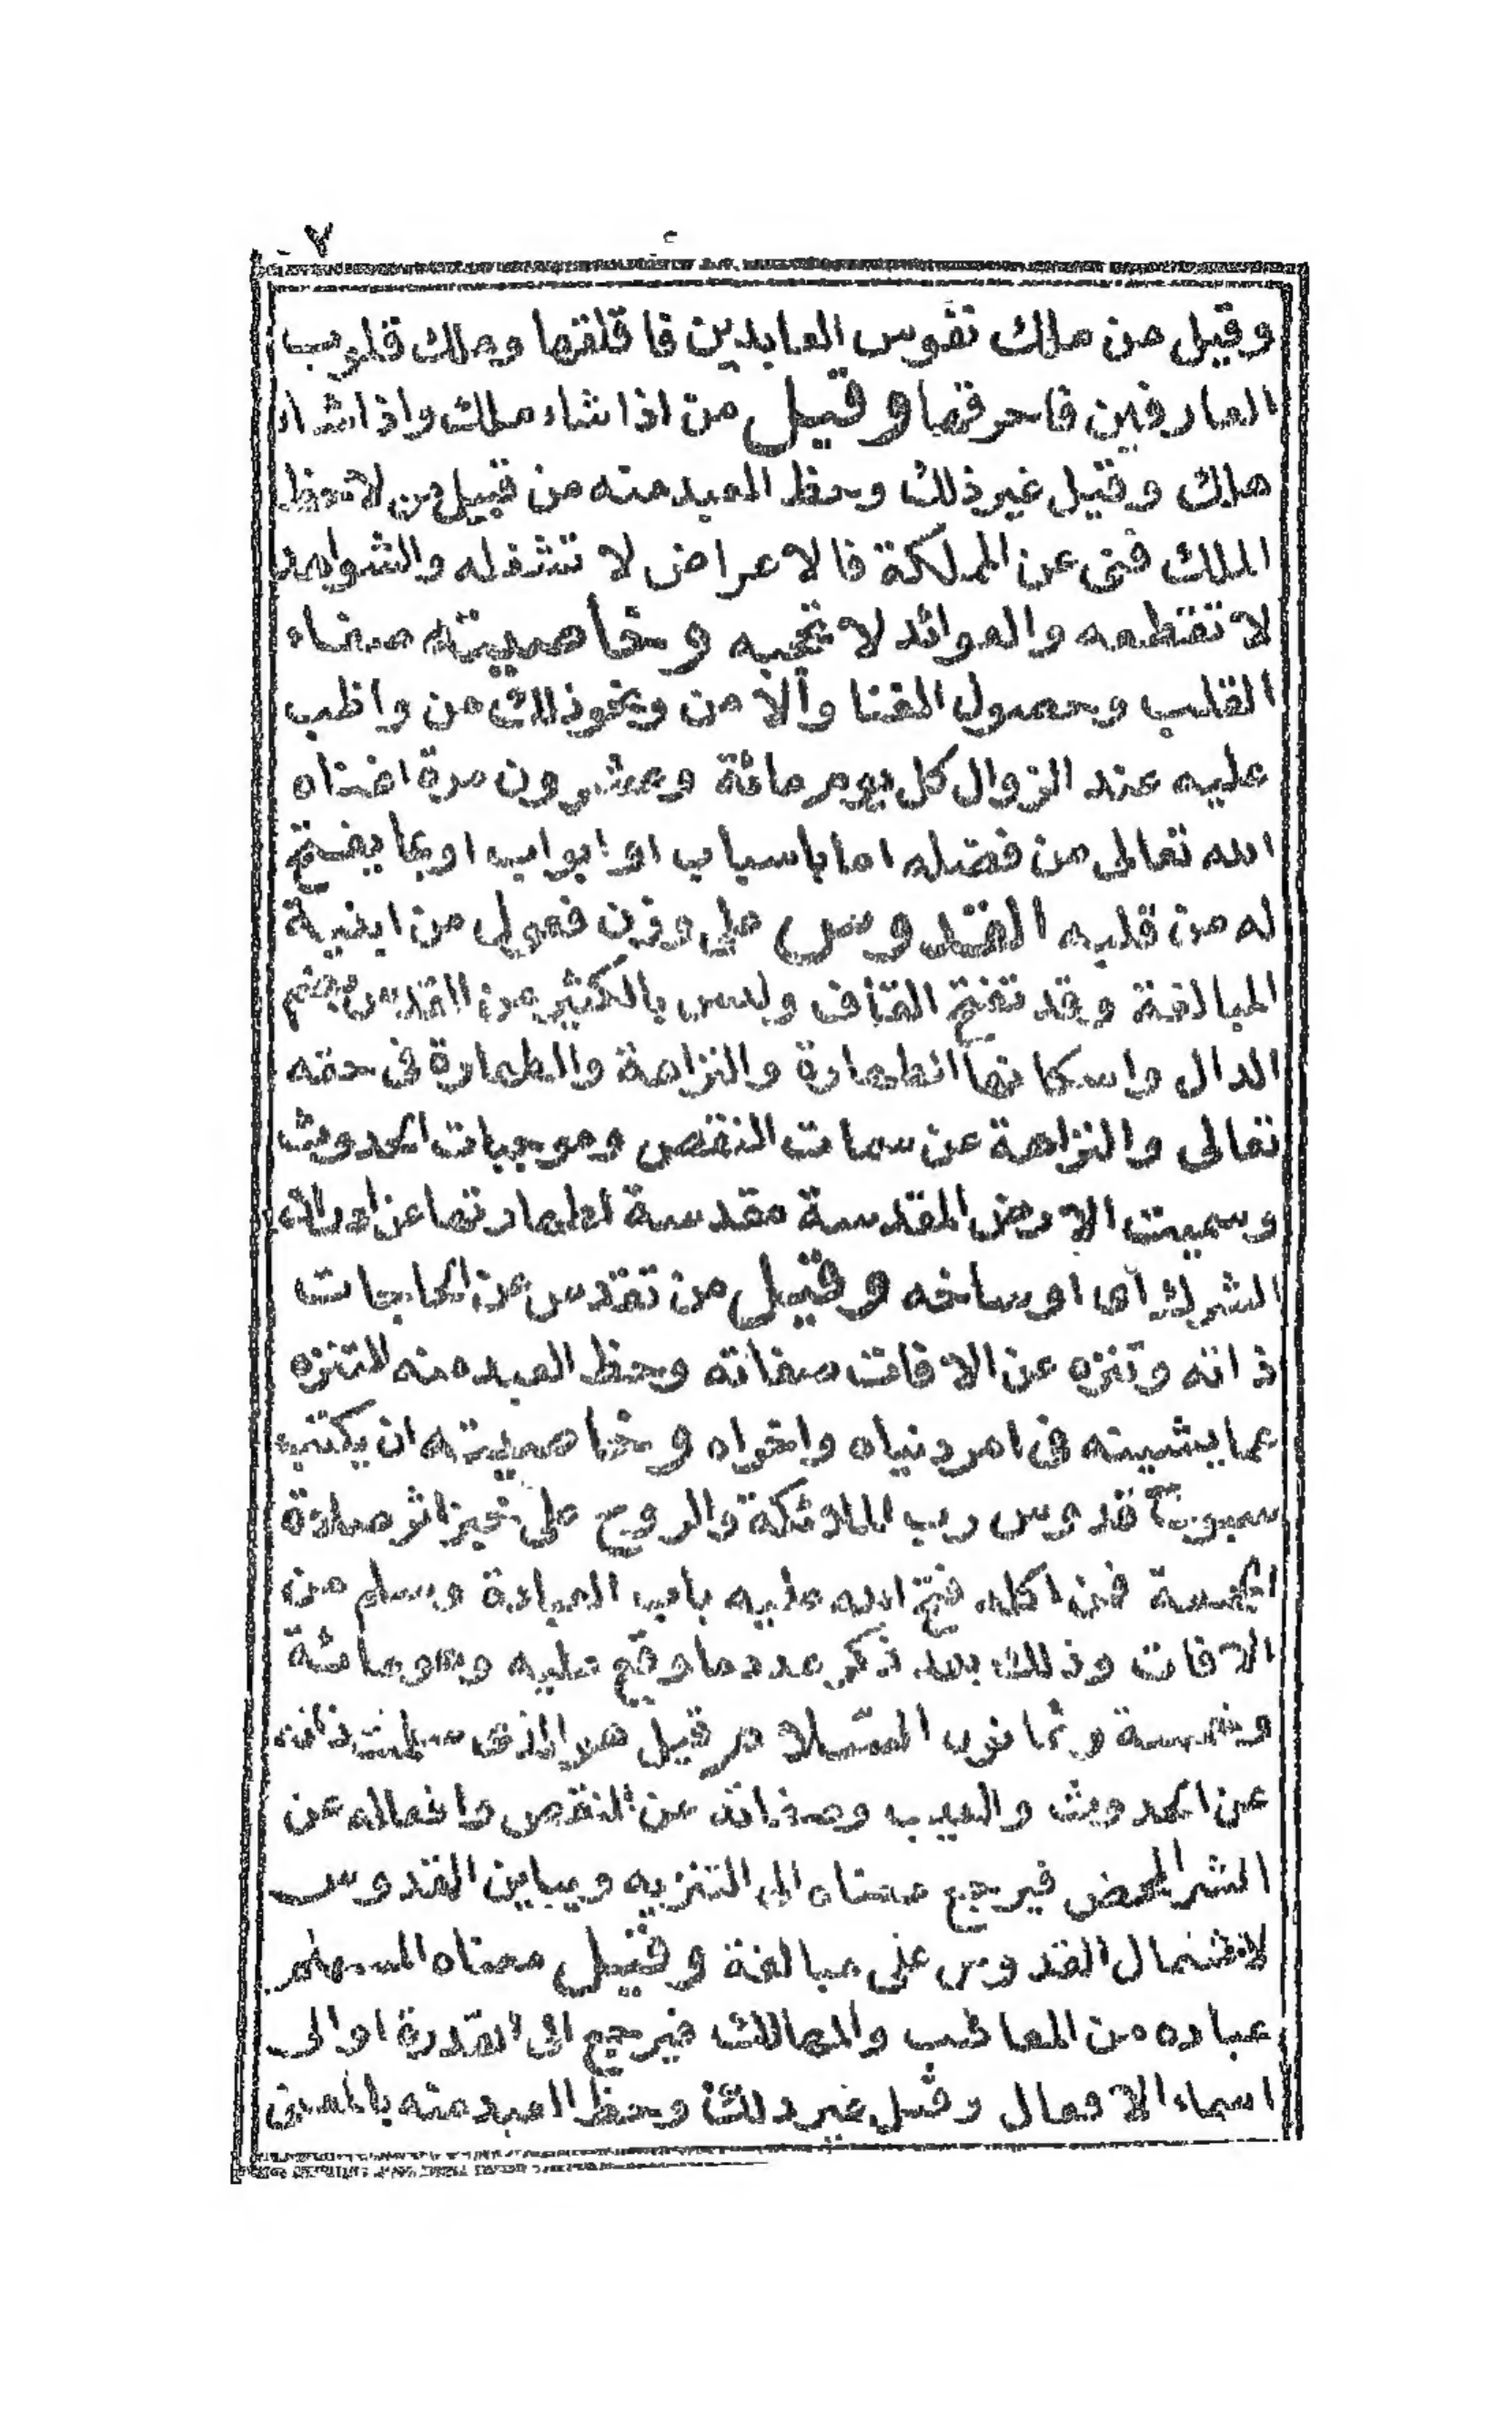 ٧
وقيل من ملك نفوس العابدين فاقلقها وملك قلوب
العارفين فاحرقها وقيل من اذا شاء ملك واذا شاء
هلك وقيل غير ذلك وحظ العبد منه من قبيل من لاحظ
الملك فنى عن المملكة فالاعراض لا تشغله والشواهد
لا تقطعه والعوائد لا تحجبه وخاصيته صفاء
القلب وحصول الغنا والأمن ونحو ذلك من واظب
عليه عند الزوال كل يوم مائة وعشرون مرة اغناه
الله تعالى من فضله اما باسباب او ابواب او بما يفتح
له من قلبه القدوس على وزن فعول من ابنية
المبالغة وقد تفتح القاف وليس بالكثير من القدس بضم
الدال واسكانها الطهارة والنزاهة والطهارة فى حقه
تعالى والنزاهة عن سمات النقص وموجبات الحدوث
وسميت الارض المقدسة مقدسة لطهارتها عن اوراك
الشرك اى اوساخه وقيل من تقدس عن الحاجات
ذاته وتنزه عن الافات صفاته وحظ العبد منه لتنزه
عما يشينه فى امر دنياه واخراه وخاصيته ان يكتب
سبوح قدوس رب الملائكة والروح على خبز اثر صلاة
الجمعة فمن اكله فتح الله عليه باب العبادة وسلم من
الافات وذلك بعد ذكر عدد ما وقع عليه وهو مائة
وخمسة وثمانون السلام قيل هو الذى سلمت ذاته
عن الحدوث والعيب وصفاته عن النقص وافعاله عن
الشر المحض فيرجع معناه الى التنزيه ويباين القدوس
لاشتمال القدوس على مبالغة وقيل معناه المسلم
عباده من المعاطب والمهالك فيرجع الى القدرة او الى
اسماء الافعال وقيل غير ذلك وحظ العبد منه بالمعنى